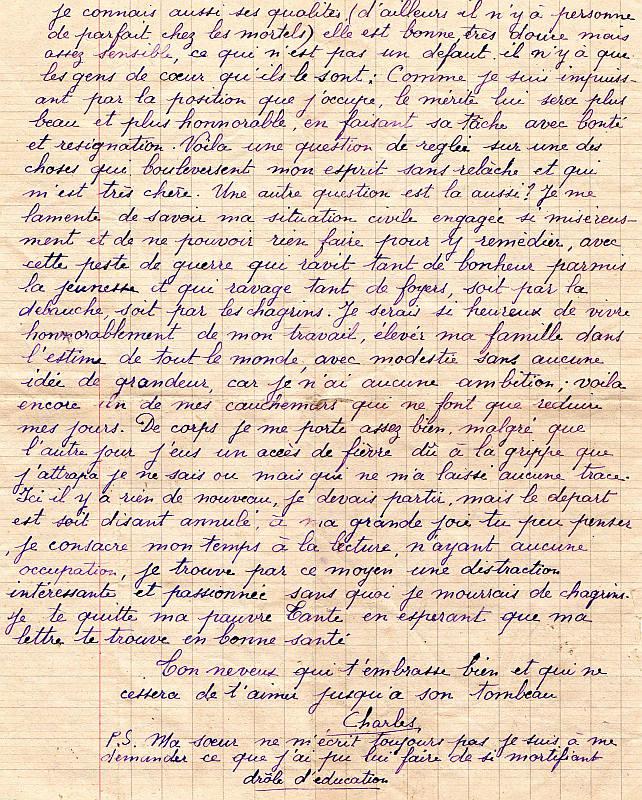 je connais aussi ses qualités (d'ailleurs il n'y à personne
de parfait chez les mortels) elle est bonne, très douce mais
assez sensible, ce qui n'est pas un defaut. il n'y à que
les gens de cœur qu'ils le sont; Comme je suis impuiss-
ant par la position que j'occupe, le mérite lui sera plus
beau et plus honnorable, en faisant sa tâche avec bonté
et resignation. Voila une question de reglée sur une des
choses qui bouleversent mon esprit sans relâche et qui
m'est très chere. Une autre question est la aussi? Je me
lamente de savoir ma situation civile engagée si misereus-
ment et de ne pouvoir rien faire pour y remédier, avec
cette peste de guerre qui ravit tant de bonheur parmis
la jeunesse et qui ravage tant de foyers, soit par la
debauche, soit par les chagrins. Je serais si heureux de vivre
honnorablement de mon travail, élever ma famille dans
l'estime de tout le monde, avec modestie sans aucune
idée de grandeur, car je n'ai aucune ambition; voila
encore un de mes cauchemars qui ne font que reduire
mes jours. De corps je me porte assez bien, malgré que
l'autre jour j'eus un accès de fièvre dû à la grippe que
j'attrapa je ne sais ou mais qui ne m'a laissé aucune trace.
Ici il y à rien de nouveau, je devais partir, mais le départ
est soit disant annulé, à ma grande joie tu peu penser
, je consacre mon temps à la lecture, n'ayant aucune
occupation, je trouve par ce moyen une distraction
intéressante et passionnée sans quoi je mourrais de chagrins.
Je te quitte ma pauvre Tante en esperant que ma
lettre te trouve en bonne santé
Ton neveux qui t'embrasse bien et qui ne
cessera de t'aimer jusqu'a son tombeau
Charles
P.S. Ma sœur ne m'écrit toujours pas je suis à me
demander ce que j'ai pu lui faire de si mortifiant
drôle d'education